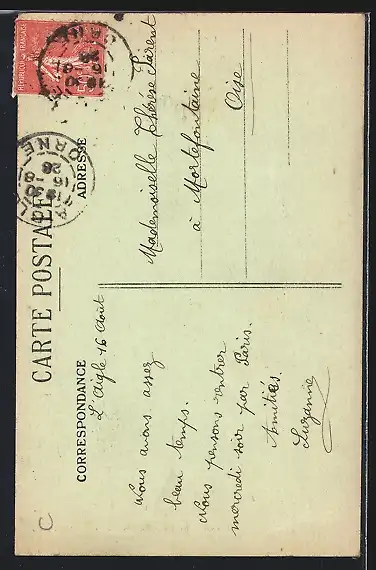 CARTE POSTALE
CORRESPONDANCE
ADRESSE
L'Aigle 16 Août
Nous avons assez
beau temps.
Nous pensons rentrer
mercredi soir par Paris.
Amitiés.
Suzanne
Mademoiselle Thérèse Parent
à Mortefontaine
Oise
ORNE
C